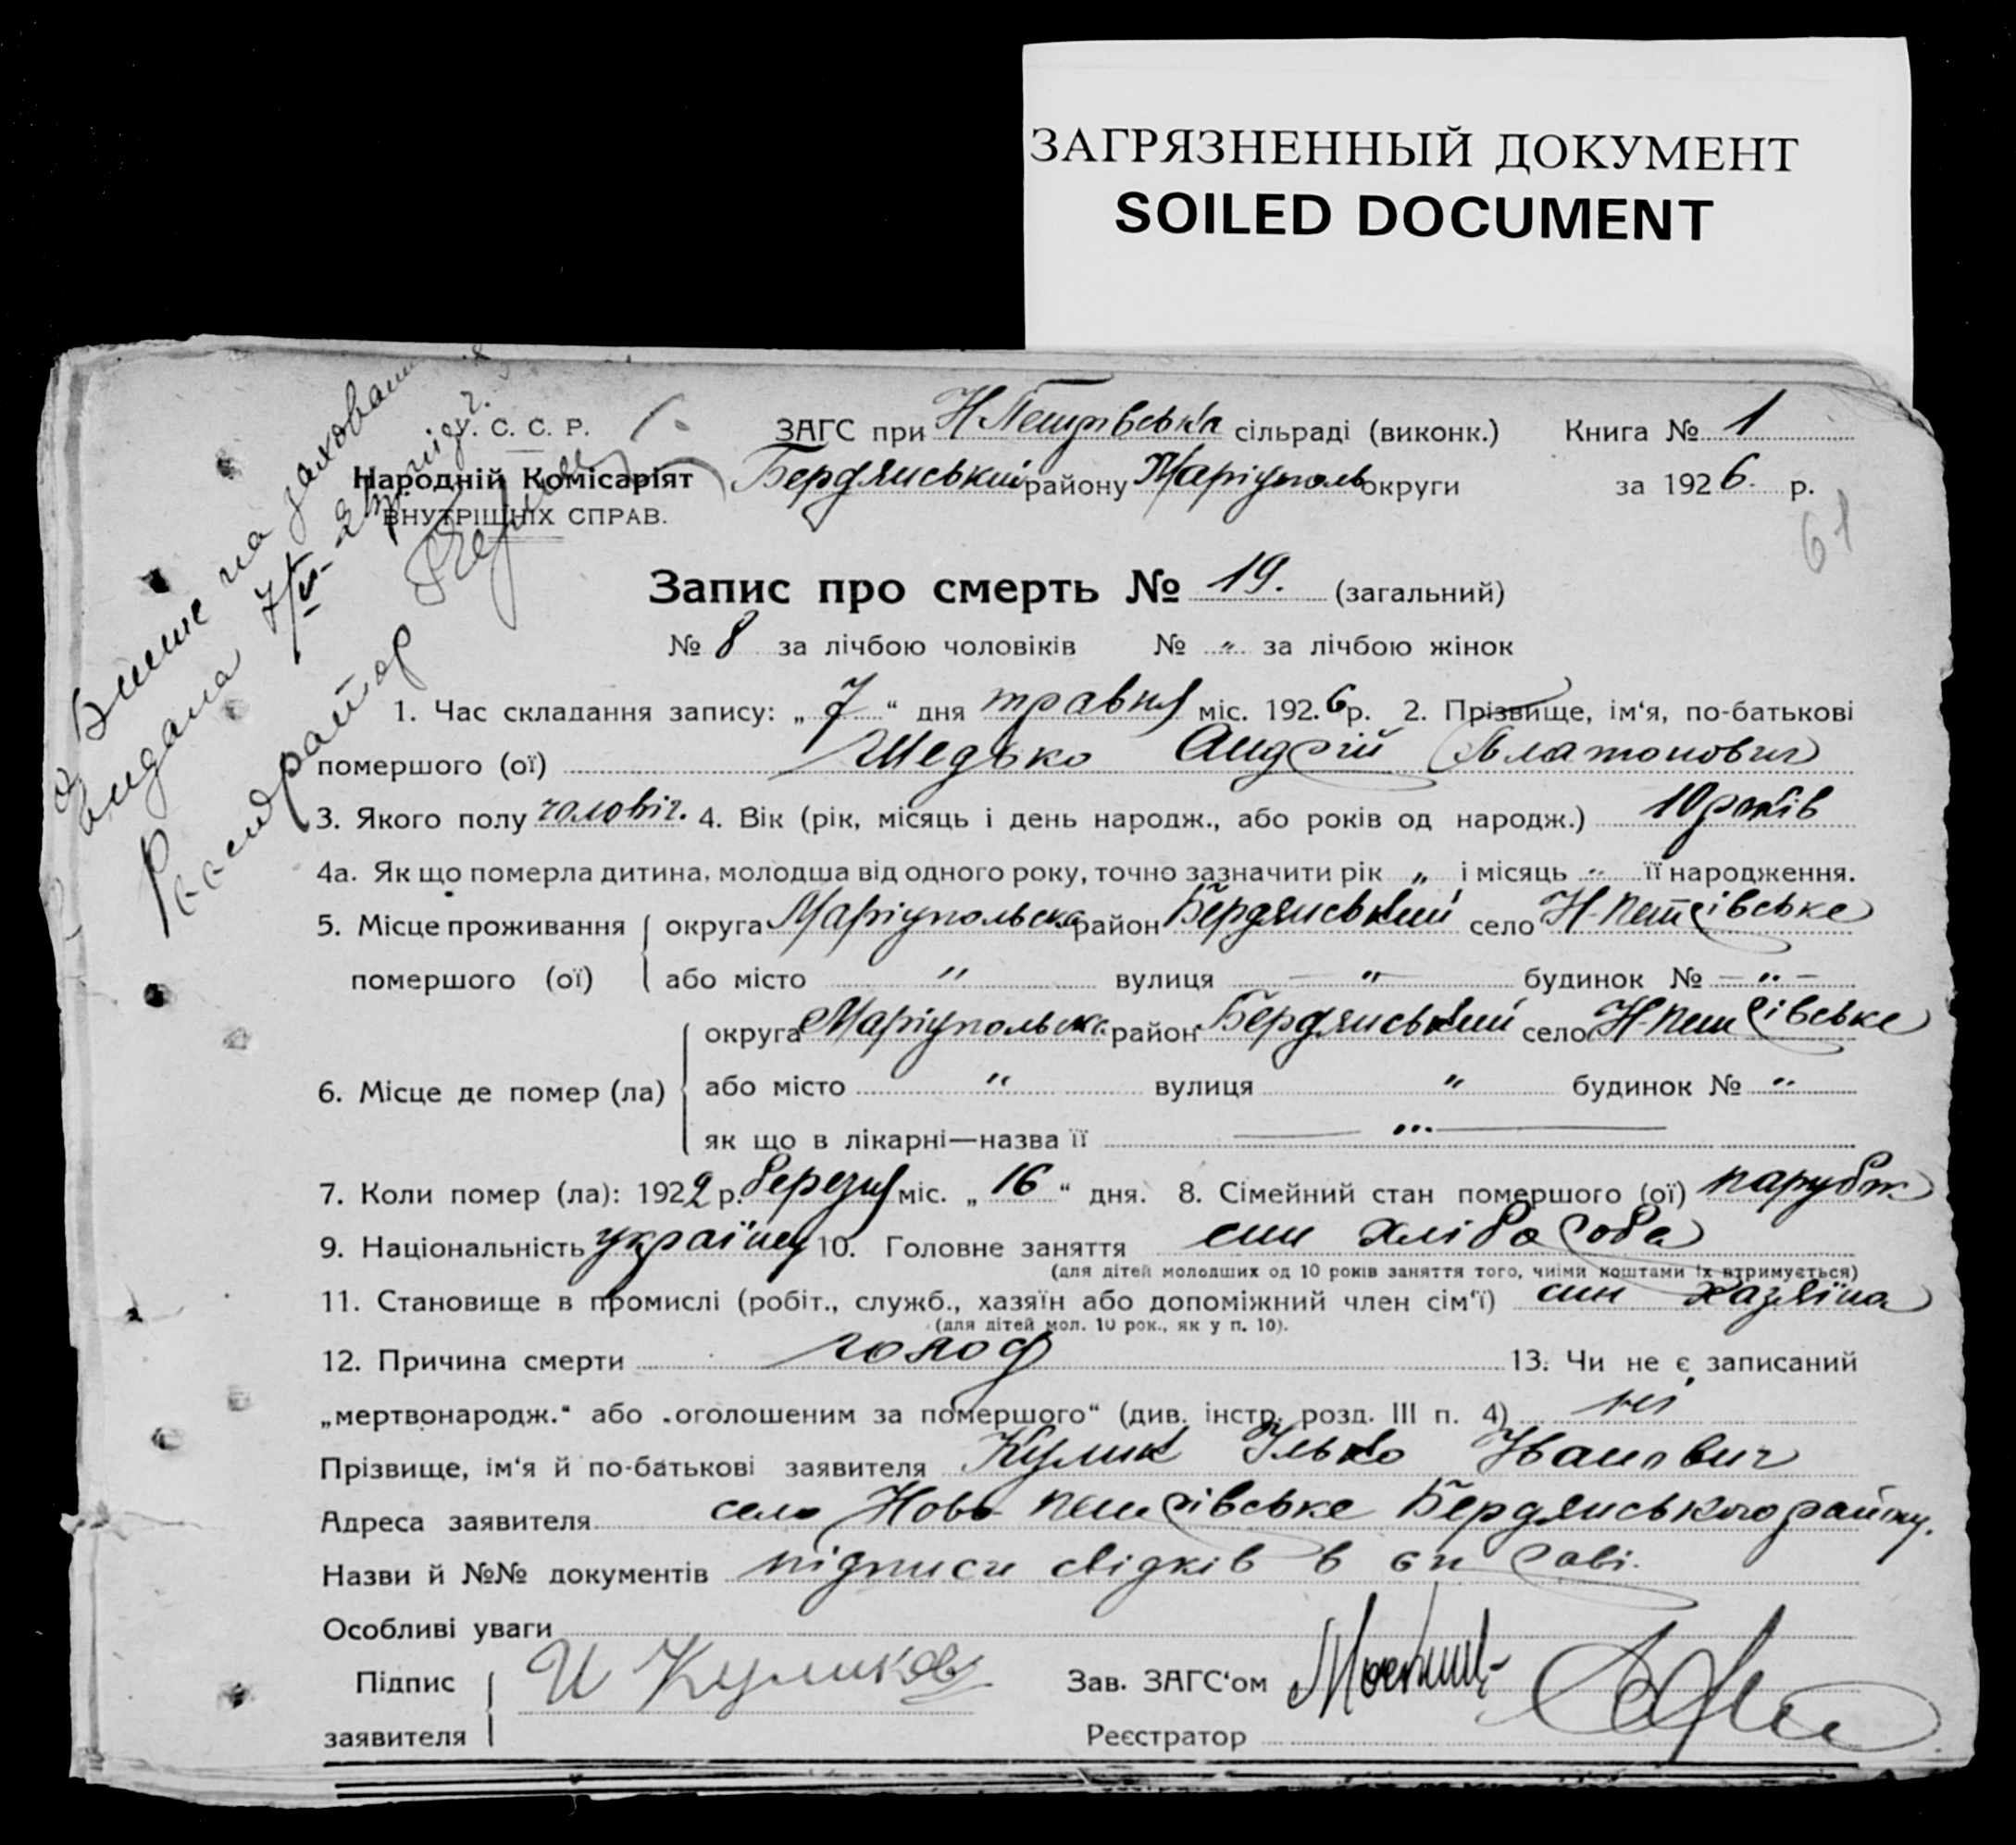 ЗАГРЯЗНЕННЫЙ ДОКУМЕНТ
SOILED DOCUMENT
У. С. С. Р.
Народній Комісаріят
ВНУТРІШНІХ СПРАВ.
ЗАГС при Н Петрівська сільраді (виконк.) Книга № 1
Бердянський району Маріуполь округи за 1926. р.
61
Запис про смерть № 19. (загальний)
№ 8 за лічбою чоловіків № " за лічбою жінок
1. Час складання запису: „ 7 “ дня травня міс. 192.6р. 2. Прізвище, ім‘я, по-батькові
помершого (ої) Шедько Андрій Платонович
3. Якого полу чоловіч. 4. Вік (рік, місяць і день народж., або років од народж.) 10 років
4а. Як що померла дитина, молодша від одного року, точно зазначити рік „ і місяць " її народження.
5. Місце проживання округа Маріупольська район Бердянський село Н-Петрівське
помершого (ої) або місто " вулиця — " — будинок № — " —
округа Маріупольська район Бердянський село Н-Петрівське
6. Місце де помер (ла) або місто " вулиця " будинок № "
як що в лікарні—назва її — " —
7. Коли помер (ла): 1922 р. березня міс. „ 16 “ дня. 8. Сімейний стан помершого (ої) парубок
9. Національність українец 10. Головне заняття син хлібороба
(для дітей молодших од 10 років заняття того, чиїми коштами їх втримується)
11. Становище в промислі (робіт., служб., хазяїн або допоміжний член сім‘ї) син хазяїна
(для дітей мол. 10 рок., як у п. 10).
12. Причина смерти голод 13. Чи не є записаний
„мертвонародж.“ або „оголошеним за помершого“ (див. інстр. розд. III п. 4) ні
Прізвище, ім‘я й по-батькові заявителя Кулик Ілько Іванович
Адреса заявителя село Ново-Петрівське Бердянського району.
Назви й №№ документів підписи свідків в справі.
Особливі уваги
Підпис И Куликов Зав. ЗАГС‘ом
заявителя Реєстратор
видана
Реєстратор